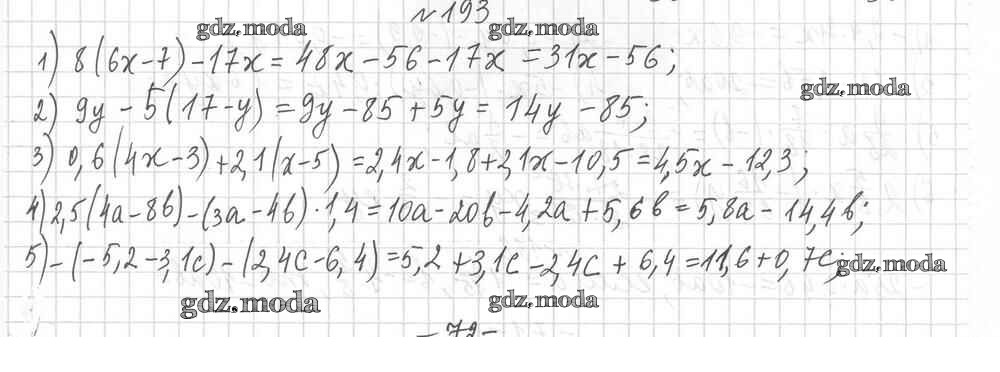 №193
gdz.moda gdz.moda
1) 8(6x-7)-17x = 48x-56-17x = 31x-56;
gdz.moda
2) 9y - 5(17-y) = 9y-85+5y = 14y-85;
3) 0,6(4x-3)+2,1(x-5) = 2,4x-1,8+2,1x-10,5 = 4,5x-12,3;
4) 2,5(4a-8b)-(3a-4b)·1,4 = 10a-20b-4,2a+5,6b = 5,8a-14,4b;
5) -(-5,2-3,1c)-(2,4c-6,4) = 5,2+3,1c-2,4c+6,4 = 11,6+0,7c;
gdz.moda
gdz.moda gdz.moda
-72-